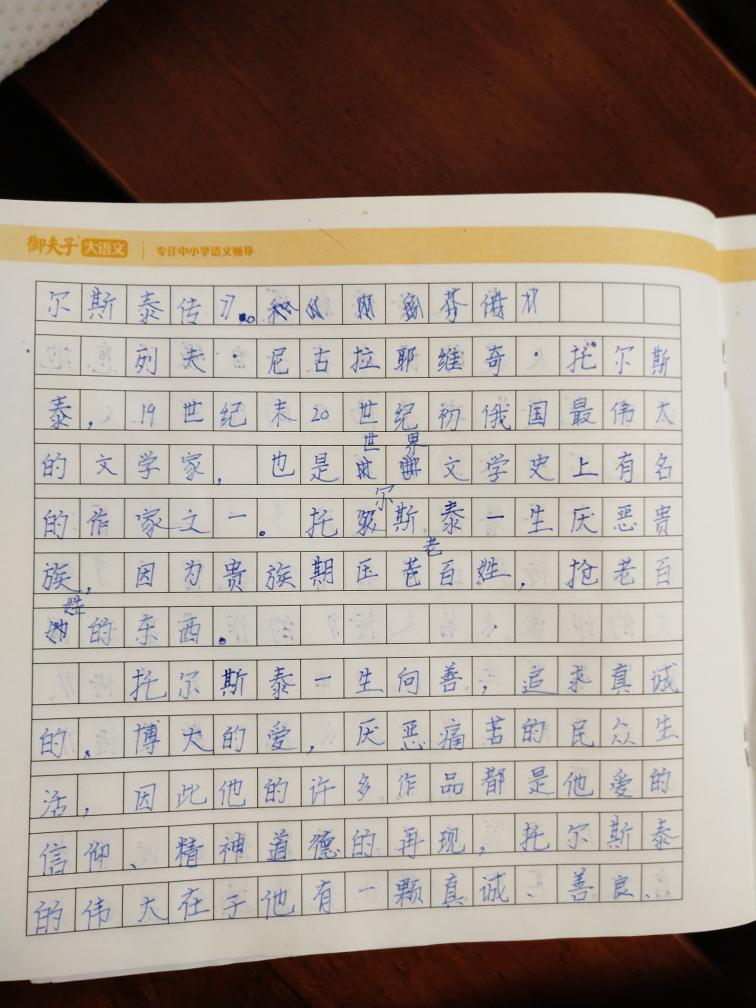 御夫子 大语文 专注中小学语文辅导
尔斯泰传》。
列夫·尼古拉耶维奇·托尔斯
泰，19世纪末20世纪初俄国最伟大
的文学家，也是世界文学史上有名
的作家文一。托尔斯泰一生厌恶贵
族，因为贵族期压老百姓，抢老百
姓的东西。
托尔斯泰一生向善，追求真诚
的、博大的爱，厌恶痛苦的民众生
活，因此他的许多作品都是他爱的
信仰、精神道德的再现，托尔斯泰
的伟大在于他有一颗真诚、善良、